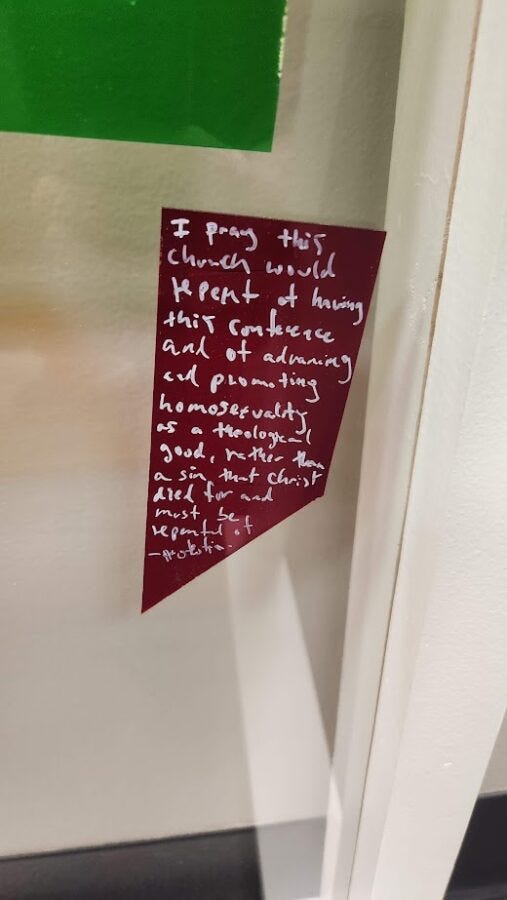 I pray this
church would
repent of having
this conference
and of advancing
and promoting
homosexuality
as a theological
good, rather than
a sin that Christ
died for and
must be
repented of